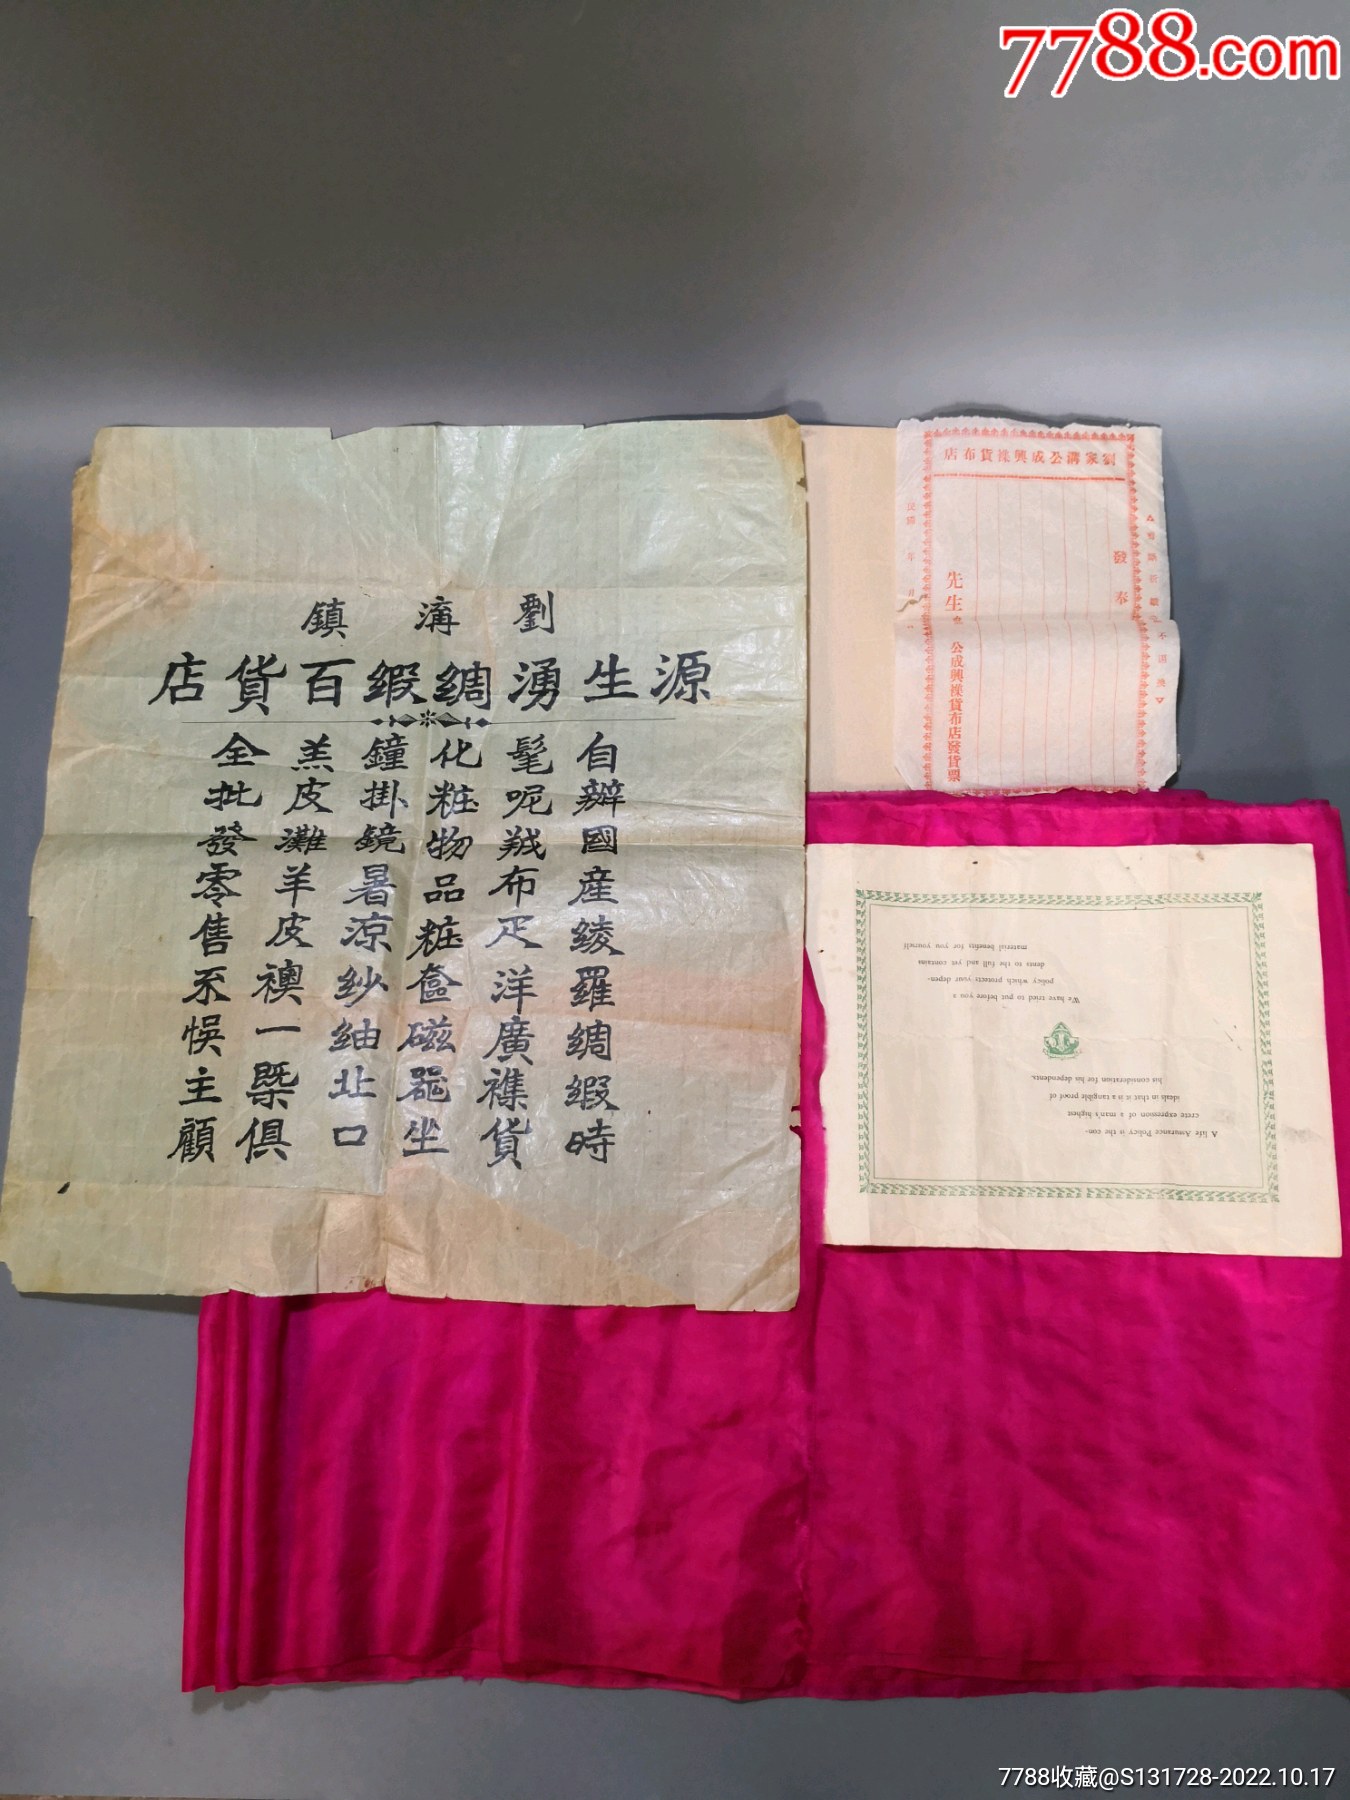 7788.com
劉海鎮
源生湧綢緞百貨店
自辦國産綾羅綢緞時
髦呢羢布疋洋廣襍貨
化粧物品粧奩磁噐坐
鐘掛鏡暑凉紗紬北口
羔皮灘羊皮襖一槩俱
全批發零售不悞主顧
劉家溝公成興襍貨布店
發奉
先生
公成興襍貨布店發貨票
民國 年 月
A life Assurance Policy is the con-
crete expression of a man's highest
ideals in that it is a tangible proof of
his consideration for his dependents.
We have tried to put before you a
policy which protects your depen-
dents to the full and yet contains
material benefits for you yourself
7788收藏@S131728-2022.10.17